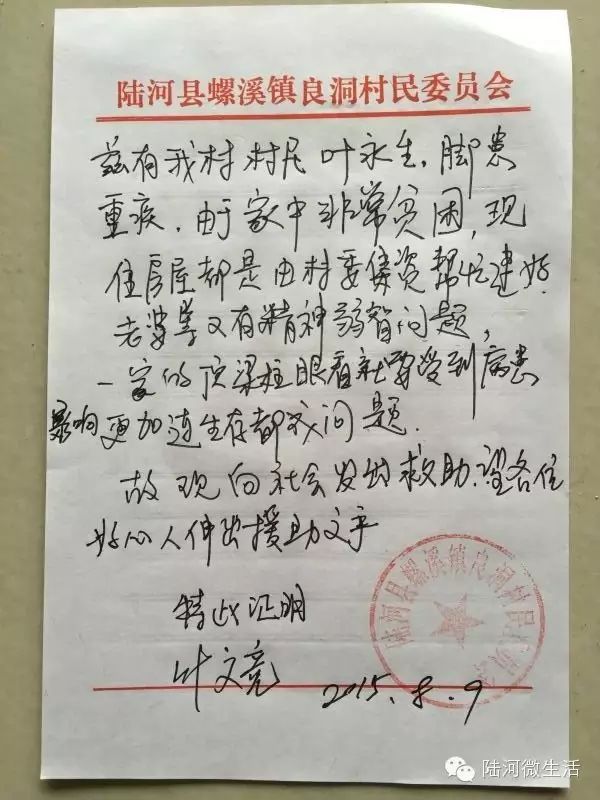 陆河县螺溪镇良洞村民委员会
兹有我村村民叶永生,脚患
重疾.由于家中非常贫困,现
住房屋都是由村委集资帮忙建好.
老婆又有精神弱智问题,
一家的顶梁柱眼看就要受到病患
影响更加连生存都成问题.
故现向社会发出救助.望各位
好心人伸出援助之手
特此证明
叶文亮
2015.8.9
陆河县螺溪镇良洞村民委员会
陆河微生活